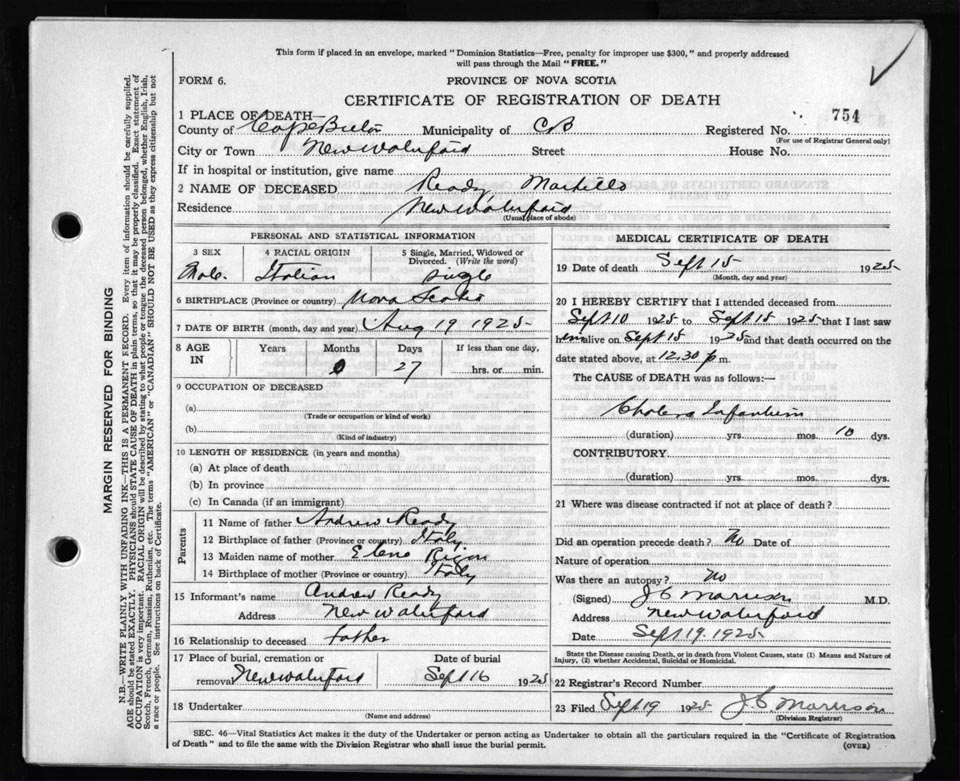 This form if placed in an envelope, marked "Dominion Statistics—Free, penalty for improper use $300," and properly addressed
will pass through the Mail "FREE."
FORM 6.
PROVINCE OF NOVA SCOTIA
CERTIFICATE OF REGISTRATION OF DEATH
1 PLACE OF DEATH—
County of Cape Breton Municipality of C B Registered No. 754
(For use of Registrar General only)
City or Town New Waterford Street House No.
If in hospital or institution, give name
2 NAME OF DECEASED Ready, Martillo
Residence New Waterford
(Usual place of abode)
PERSONAL AND STATISTICAL INFORMATION
3 SEX 4 RACIAL ORIGIN 5 Single, Married, Widowed or
Divorced. (Write the word)
Male. Italian single
6 BIRTHPLACE (Province or country) Nova Scotia
7 DATE OF BIRTH (month, day and year) Aug 19 1925
8 AGE IN Years Months Days If less than one day,
0 27 hrs. or min.
9 OCCUPATION OF DECEASED
(a)
(Trade or occupation or kind of work)
(b)
(Kind of industry)
10 LENGTH OF RESIDENCE (in years and months)
(a) At place of death
(b) In province
(c) In Canada (if an immigrant)
Parents
11 Name of father Andrew Ready
12 Birthplace of father (Province or country) Italy
13 Maiden name of mother Elene
14 Birthplace of mother (Province or country) Italy
15 Informant's name Andrew Ready
Address New Waterford
16 Relationship to deceased father
17 Place of burial, cremation or Date of burial
removal New Waterford Sept 16 1925
18 Undertaker
(Name and address)
MEDICAL CERTIFICATE OF DEATH
19 Date of death Sept 15 1925
(Month, day and year)
20 I HEREBY CERTIFY that I attended deceased from
Sept 10 1925 to Sept 15 1925 that I last saw
him alive on Sept 15 1925 and that death occurred on the
date stated above, at 12.30 p m.
The CAUSE of DEATH was as follows:—
Cholera Infantum
(duration) yrs. mos. 10 dys.
CONTRIBUTORY
(duration) yrs. mos. dys.
21 Where was disease contracted if not at place of death?
Did an operation precede death? No Date of
Nature of operation
Was there an autopsy? No
(Signed) J C Morrison M.D.
Address New Waterford
Date Sept 19. 1925
State the Disease causing Death, or in death from Violent Causes, state (1) Means and Nature of
Injury, (2) whether Accidental, Suicidal or Homicidal.
22 Registrar's Record Number
23 Filed Sept 19 1925 J C Morrison
(Division Registrar)
SEC. 46—Vital Statistics Act makes it the duty of the Undertaker or person acting as Undertaker to obtain all the particulars required in the "Certificate of Registration
of Death" and to file the same with the Division Registrar who shall issue the burial permit.
(OVER)
MARGIN RESERVED FOR BINDING
N.B.—WRITE PLAINLY WITH UNFADING INK—THIS IS A PERMANENT RECORD. Every item of information should be carefully supplied.
AGE should be stated EXACTLY. PHYSICIANS should STATE CAUSE OF DEATH in plain terms, so that it may be properly classified. Exact statement of
OCCUPATION is very important. RACIAL ORIGIN will be described by stating to what people or tongue the deceased person belonged, whether English, Irish,
Scotch, French, German, Russian, Ruthenian, etc. The terms "AMERICAN" or "CANADIAN" SHOULD NOT BE USED as they express citizenship but not
a race or people. See instructions on back of Certificate.